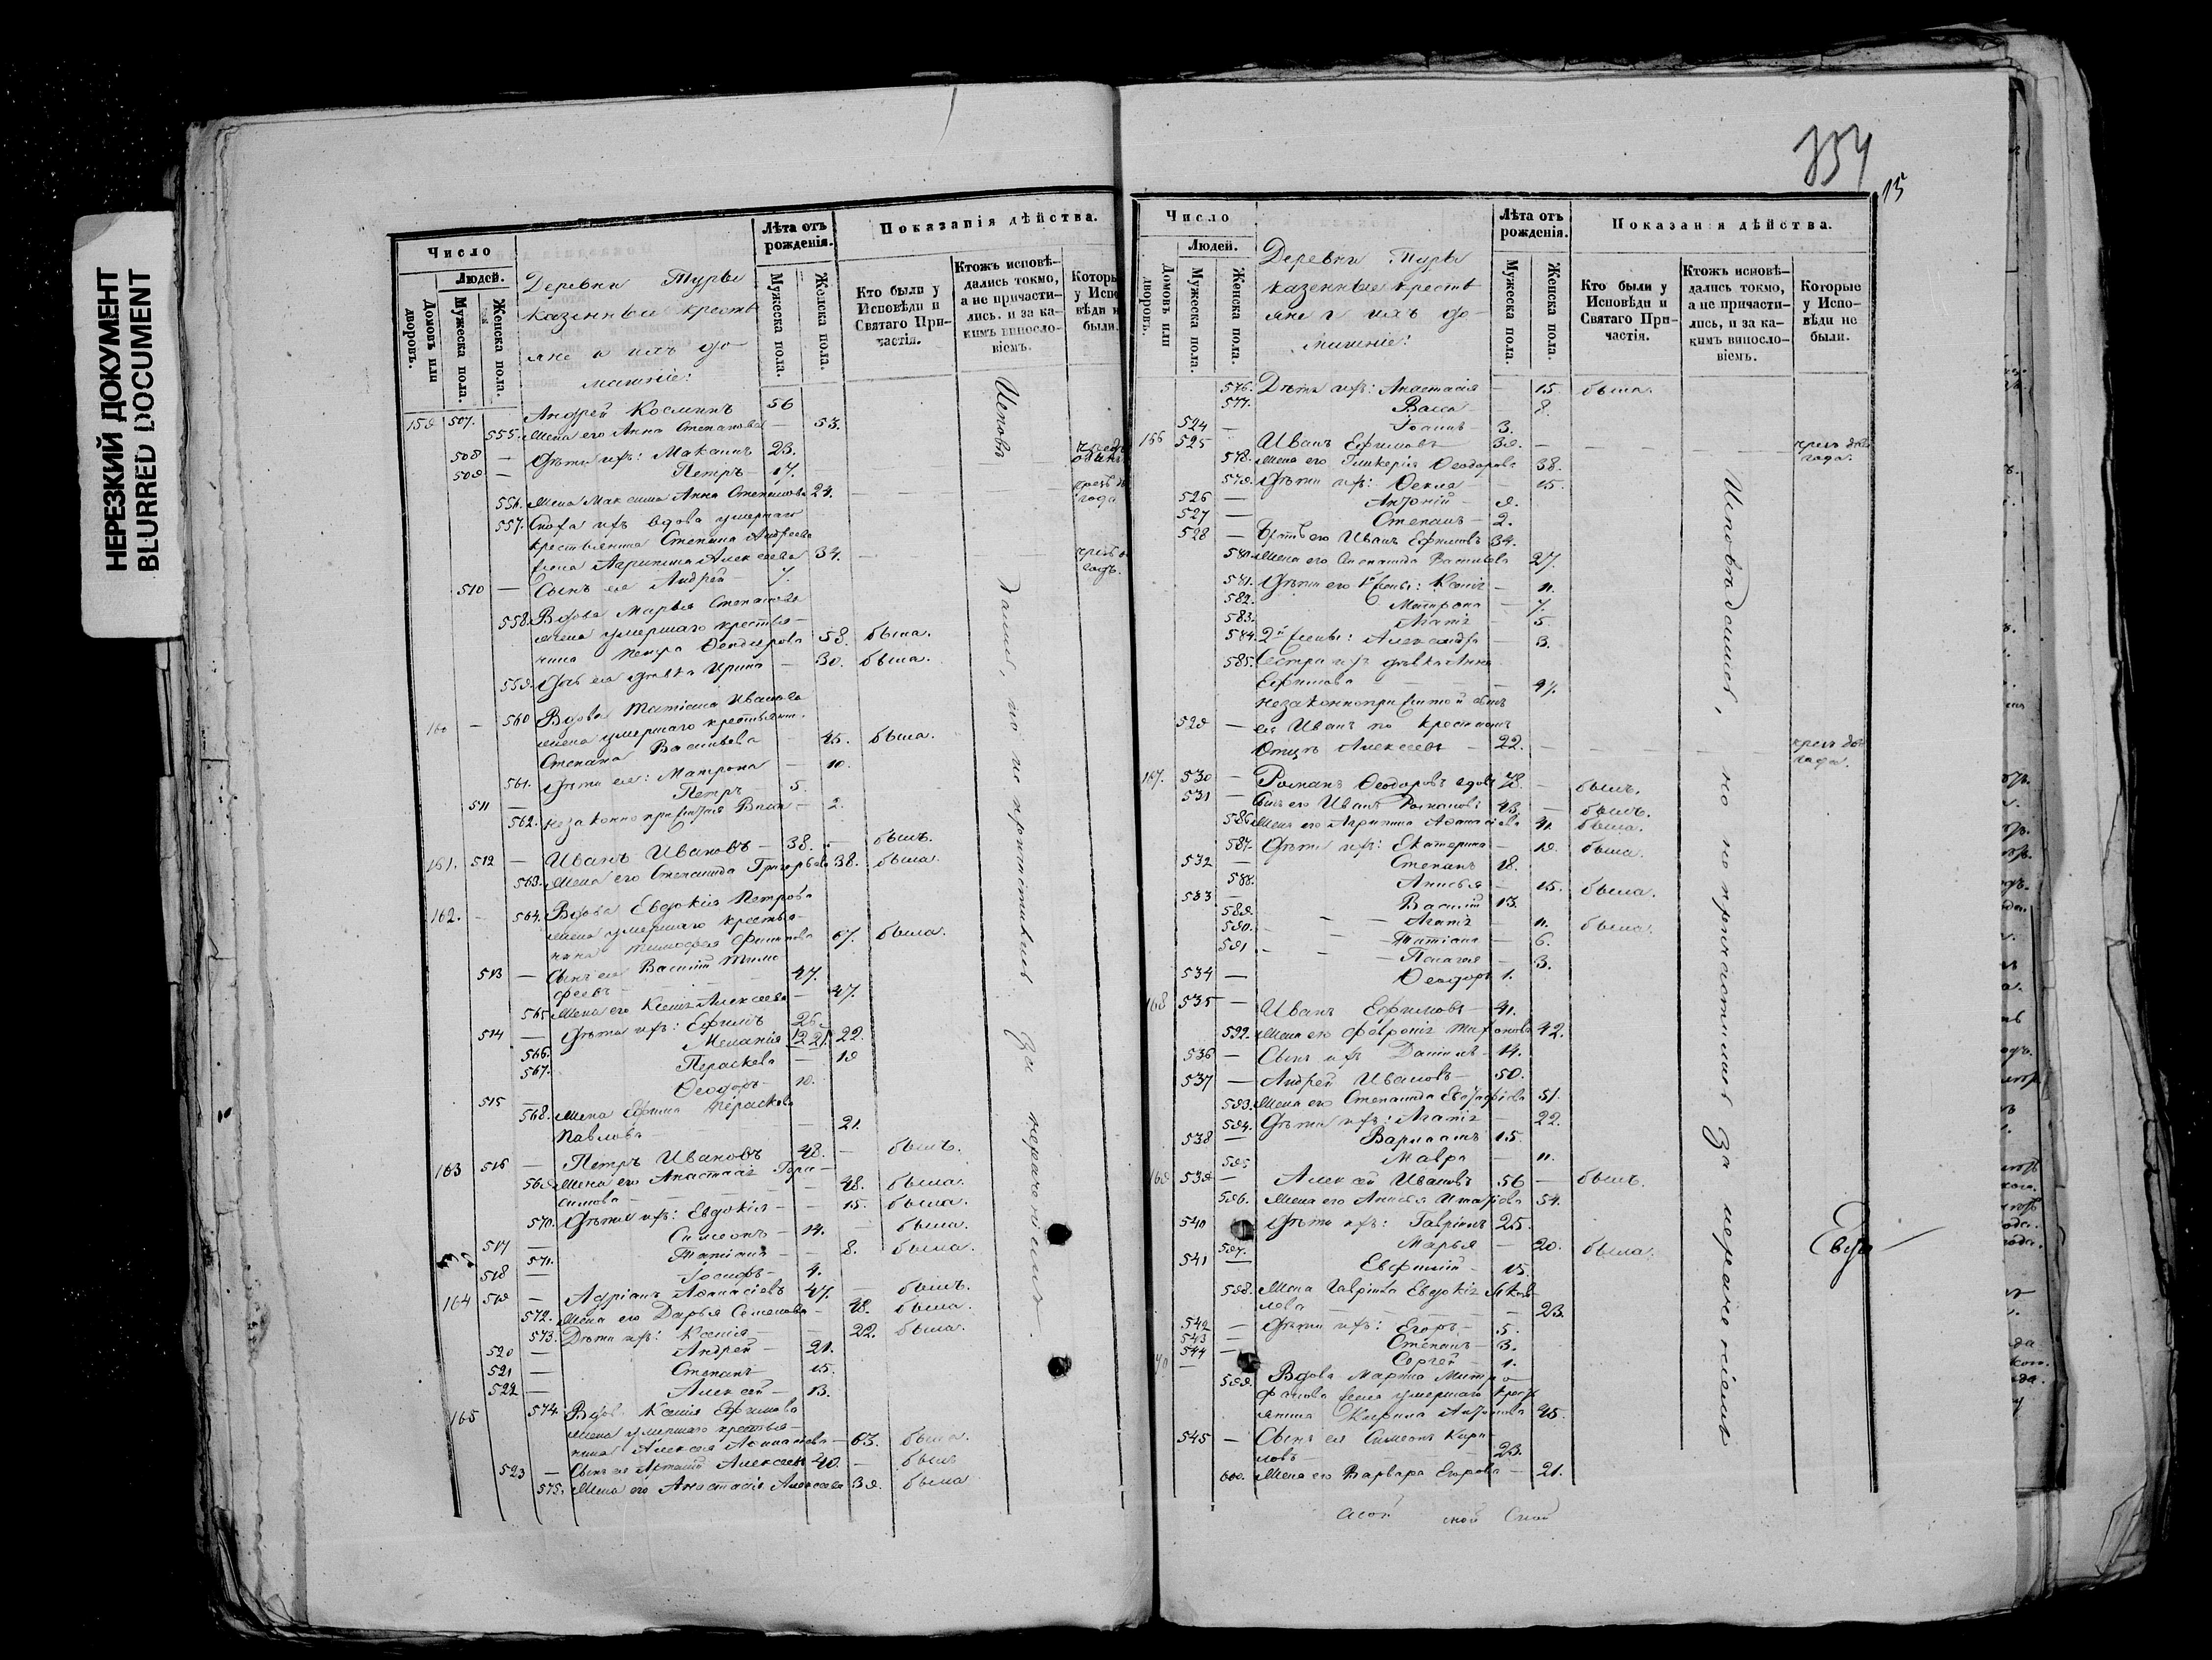 НЕРЕЗКИЙ ДОКУМЕНТ
BLURRED DOCUMENT
354
15
Число
Людей.
Домовъ или дворовъ.
Мужеска пола.
Женска пола.
Деревни Туры
казенныи кресть
яне и ихъ до
машніе:
Лѣта отъ рожденія.
Мужеска пола.
Женска пола.
Показанія дѣйства.
Кто были у Исповѣди и Святаго Причастія.
Ктожъ исповѣ-
дались токмо,
а не причасти-
лись, и за ка-
кимъ винословіемъ.
Которы
у Испо
вѣди н
были.
159 507. Андрей Косминъ 56
555. Жена его Анна Степанова — 53.
508 — Дѣти ихъ: Максимъ 23.
509 — Петръ 17.
556. Жена Максима Анна Степанова 24.
557. Сноха ихъ вдова умершаго
крестьянина Степана Андреева
жена Агрипина Алексеева 34.
510 — Сынъ ея Андрей 7.
558. Вдова Марья Степанова
жена умершаго крестья-
нина Петра Феодорова 58. была.
559. Дочь ея дѣвка Ирина — 30. была.
160 — 560 Вдова Татіана Иванова
жена умершаго крестьянин.
Степана Васильева — 45. была.
561. Дѣти ея: Матрона — 10.
511 — Петръ 5.
562. незаконноприжитая Васса — 2.
161. 512 — Иванъ Ивановъ — 38. былъ.
563. Жена его Степанида Григорьева 38. была.
162. — 564. Вдова Евдокія Петрова
жена умершаго крестья-
нина Тимофея Филипова 67. была.
513 — Сынъ ея Василій Тимо
феевъ — 47.
565 Жена его Ксенія Алексеева — 47.
514 — Дѣти ихъ: Ефимъ 25.
566. Меланія 22.
567. Параскева — 19
515 — Феодоръ 10.
568. Жена Ефима Параскева
Павлова — 21.
163 516 — Петръ Ивановъ 48. — былъ.
569 Жена его Анастасія Гера-
симова — 48. была.
570. Дѣти ихъ: Евдокія — 15. была.
517 — Симеонъ — 14. — была.
571. Татіана — 8. была.
518 — Іосифъ — 4.
164 519 — Адріанъ Афанасіевъ 47. — былъ.
572. Жена его Дарья Семенова — 48. была.
573. Дѣти ихъ: Ксенія — 22. была.
520 — Андрей — 21.
521 — Степанъ — 15.
522 — Алексѣй — 13.
165 574. Вдова Ксенія Ефимова
жена умершаго крестья-
нина Алексея Афанасьева — 63. была.
523 — Сынъ ея Алексеевъ 40. — былъ
575. Жена его Анастасія Алексеева 39. была
Исповѣ дались, но не причастились за нераченіемъ.
Число
Людей.
Домовъ или дворовъ.
Мужеска пола.
Женска пола.
Деревни Туры
казенные кресть
яне и ихъ до-
машніе:
Лѣта отъ рожденія.
Мужеска пола.
Женска пола.
Показанія дѣйства.
Кто были у
Исповѣди и
Святаго При-
частія.
Ктожъ исповѣ-
дались токмо,
а не причасти-
лись, и за ка-
кимъ винословіемъ.
Которые
у Испо-
вѣди не
были.
576. Дѣти ихъ: Анастасія — 15. была.
577. Васса — 8.
524 — Іоаннъ — 3.
166 525 — Иванъ Ефимовъ 39. — чрезъ два года.
578. Жена его Гликерія Феодорова 38.
579. Дѣти ихъ: Фекла — 15.
526 — Антоній — 9.
527 — Степанъ — 2.
528 — Братъ его Иванъ Ефимовъ 34.
580. Жена его Степанида Васильева 27.
581. Дѣти его 1й жены: Ксенія — 11.
582. Матрона — 7.
583. Агапія — 5
584. 2й жены: Александра — 3.
585. Сестра ихъ дѣвка Анна
Ефимова — 47.
незаконноприжитой сынъ
529 — ея Иванъ по крестномъ
Отцѣ Алексеевъ — 22. — чрезъ два года.
167. 530 — Романъ Феодоровъ вдовъ 78. — былъ.
531 — Сынъ его Иванъ Романовъ 43. — былъ.
586. Жена его Агрипина Афанасіева 41. была.
587. Дѣти ихъ: Екатерина — 19. была.
532 — Степанъ 18.
588. Анисья — 15. была.
533 — Василій 13.
589. — Агапія — 11. была.
590. — Татіана — 6.
591 — Пелагея — 3.
534 — Феодоръ 1.
168 535 — Иванъ Ефимовъ — 41.
592. Жена его Февронія Тихонова 42.
536 — Сынъ ихъ Даніилъ — 14.
537 — Андрей Ивановъ — 50.
593. Жена его Степанида 51.
594. Дѣти ихъ: Агапія — 22.
538 — Варлаамъ 15.
595 Мавра — 11.
169 539 — Алексѣй Ивановъ 56 — былъ.
596. Жена его Анисья 54.
540 Дѣти ихъ: Гавріилъ 25.
597. Марья — 20. была.
541 — Евфимій — 15.
598. Жена Гавріила Евдокія Яков
лева — 23.
542 — Дѣти ихъ: Егоръ — 5.
543 — Степанъ — 3.
544 — Сергей — 1.
599. Вдова Марѳа Митро
фанова жена умершаго кресть
янина Кирила Антонова 45.
545 — Сынъ ея Симеонъ Кири
ловъ — 23.
600. Жена его Варвара Егорова — 21.
Исповѣдались, но не причастились за нераченіемъ